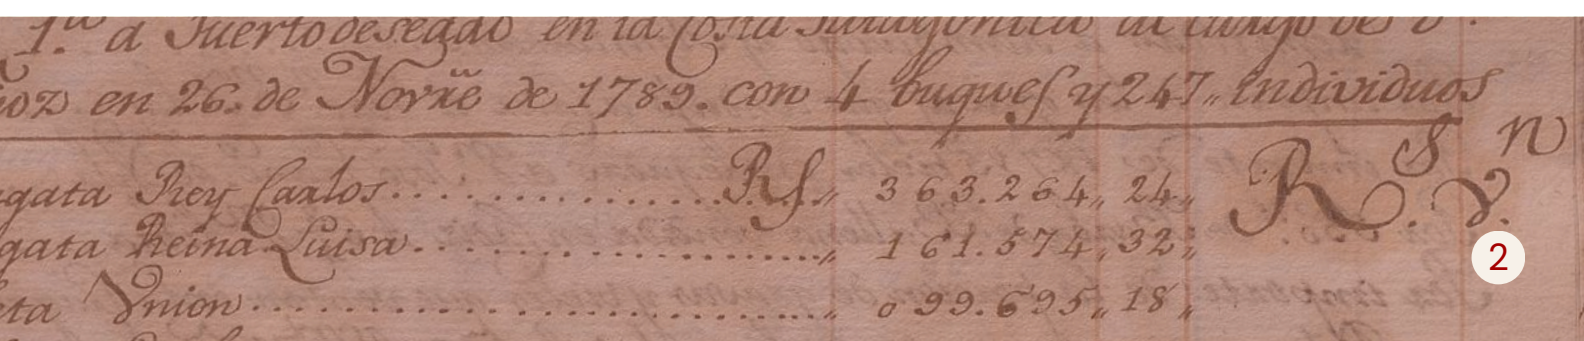 1.ª a Puertodeseado en la Costa Patagonica al cargo de D.ⁿ
ñoz en 26. de Novṝe de 1789. con 4 buques y 247„ individuos
gata Rey Carlos................R.s„ 363.264„ 24„ R.s V.n
gata Reina Luisa..................„ 161.574„ 32„
eta Vnion..........................„ 099.695„ 18„
2